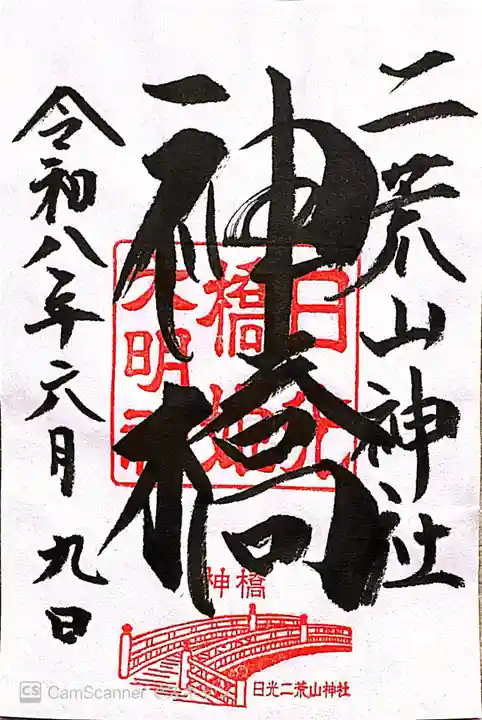 二荒山神社
神橋
令和八年六月九日
日光
橋姫
大明神
神橋
日光二荒山神社
CS CamScanner